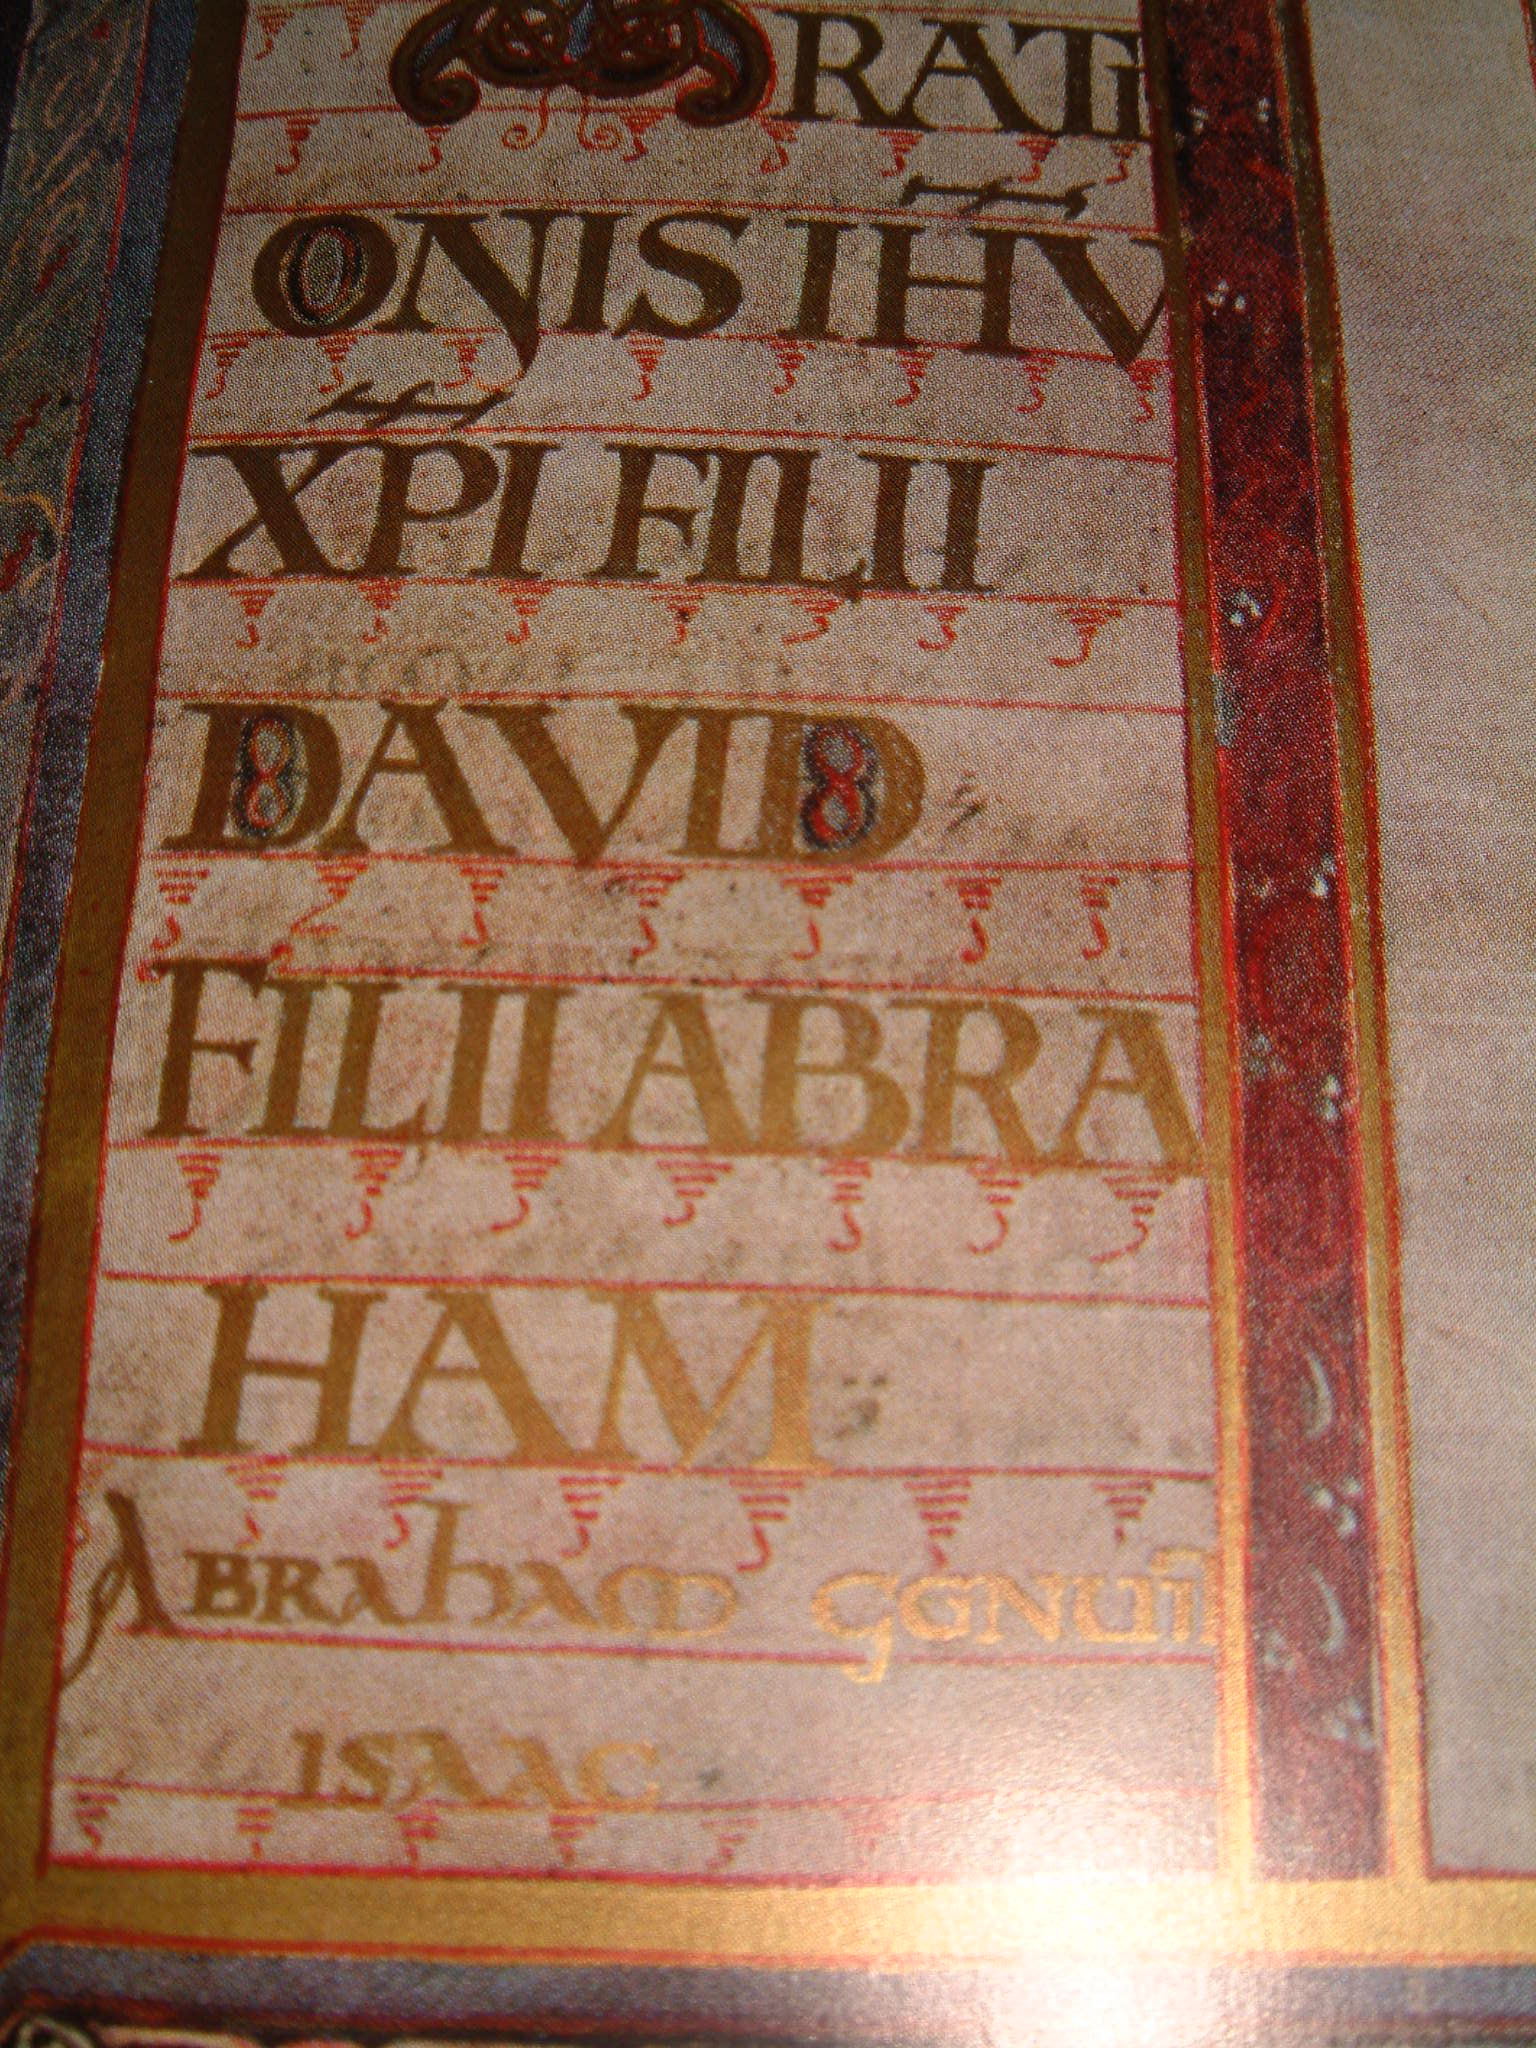 RATI
ONIS IHV
XPI FILII
DAVID
FILII ABRA
HAM
ABRAHAM GENUIT
ISAAC